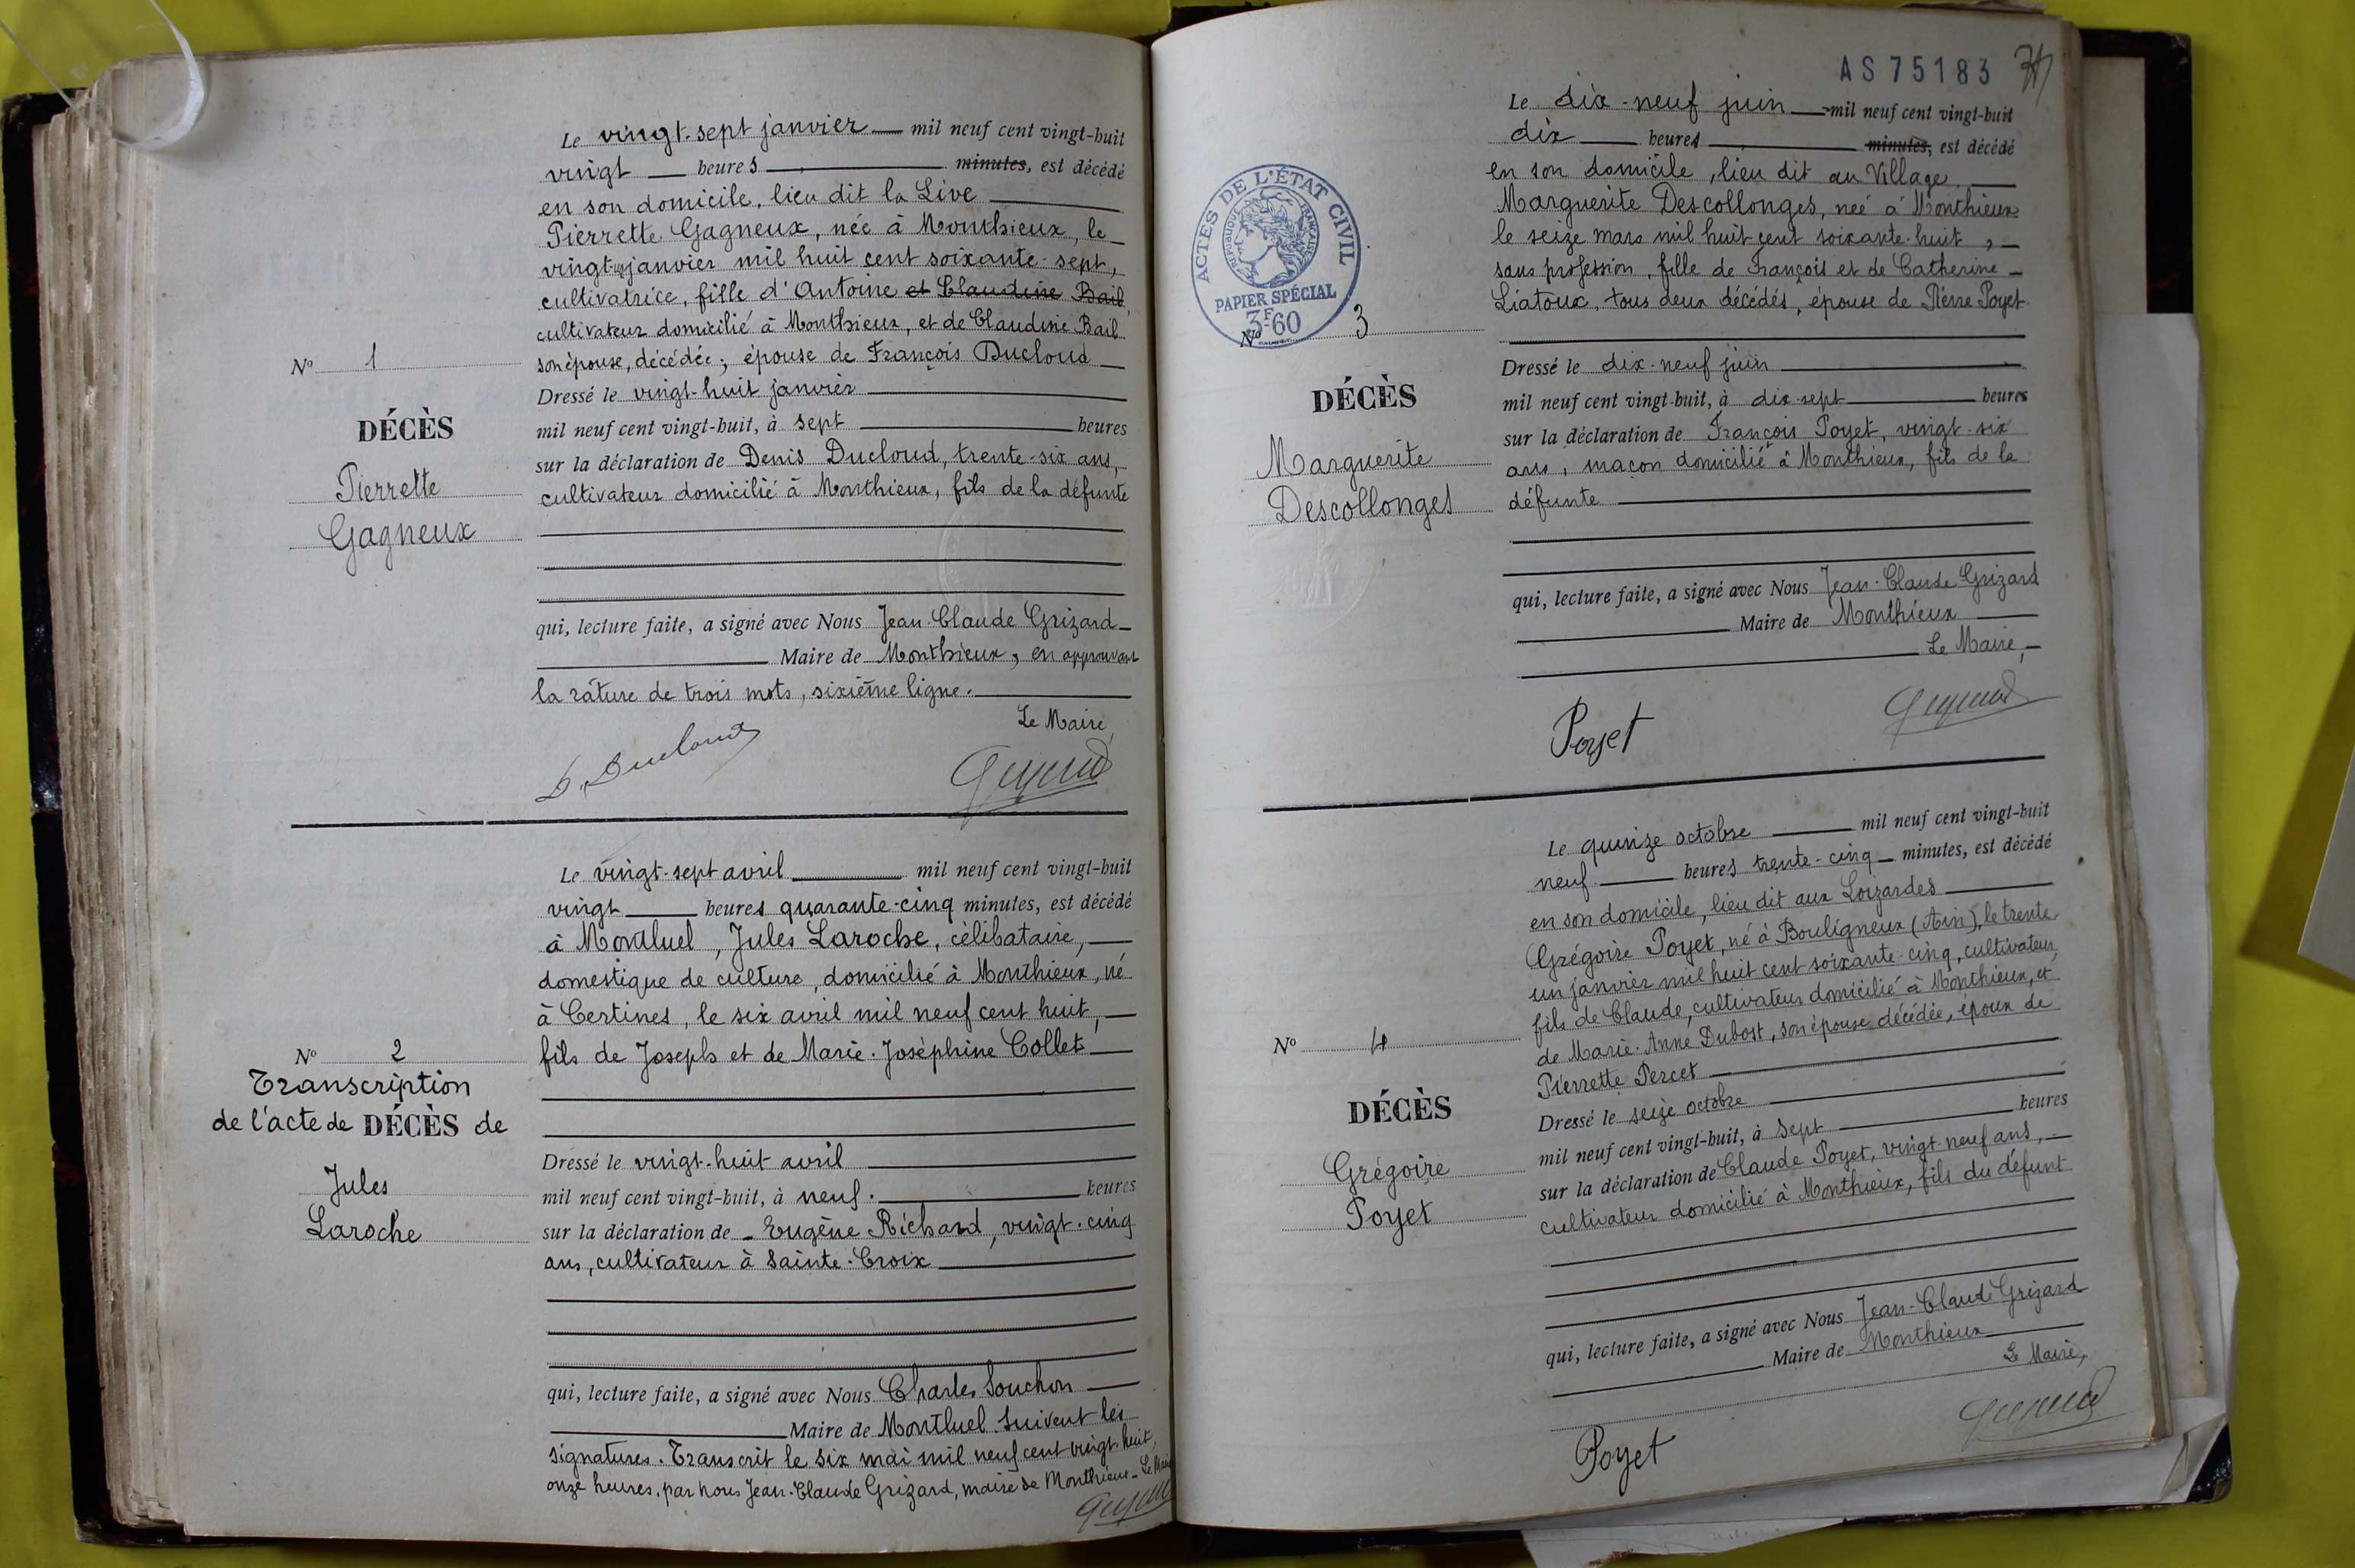 Le vingt-sept janvier — mil neuf cent vingt-huit
vingt — heures — minutes, est décédé
en son domicile, lieu dit la Live
Pierrette Gagneux, née à Monthieux, le
vingt janvier mil huit cent soixante-sept,
cultivatrice, fille d'Antoine et Claudine Bail
cultivateur domicilié à Monthieux, et de Claudine Bail
son épouse, décédée; épouse de François Ducloud
Dressé le vingt-huit janvier
mil neuf cent vingt-huit, à sept heures
sur la déclaration de Denis Ducloud, trente-six ans,
cultivateur domicilié à Monthieux, fils de la défunte
qui, lecture faite, a signé avec Nous Jean-Claude Grizard
Maire de Monthieux, en approuvant
la râture de trois mots, sixième ligne.
Le Maire,
D. Ducloud
N° 1
DÉCÈS
Pierrette
Gagneux
Le vingt-sept avril mil neuf cent vingt-huit
vingt heures quarante-cinq minutes, est décédé
à Montluel, Jules Laroche, célibataire,
domestique de culture, domicilié à Monthieux, né
à Certines, le six avril mil neuf cent huit,
fils de Joseph et de Marie-Joséphine Collet
N° 2
Transcription
de l'acte de DÉCÈS de
Jules
Laroche
Dressé le vingt-huit avril
mil neuf cent vingt-huit, à neuf. heures
sur la déclaration de Eugène Richard, vingt-cinq
ans, cultivateur à Sainte-Croix
qui, lecture faite, a signé avec Nous Charles Souchon
Maire de Montluel. Suivent les
signatures. Transcrit le six mai mil neuf cent vingt-huit,
onze heures, par nous Jean-Claude Grizard, maire de Monthieux - Le Maire
AS 75183
Le dix-neuf juin mil neuf cent vingt-huit
dix heures minutes, est décédé
en son domicile, lieu dit au Village
Marguerite Descollonges, neé à Monthieux
le seize mars mil huit cent soixante-huit,
sans profession, fille de François et de Catherine
Liatoux, tous deux décédés, épouse de Pierre Poyet
ACTES DE L'ÉTAT CIVIL
RÉPUBLIQUE FRANÇAISE
PAPIER SPÉCIAL
3F60
N° 3
DÉCÈS
Marguerite
Descollonges
Dressé le dix-neuf juin
mil neuf cent vingt-huit, à dix-sept heures
sur la déclaration de François Poyet, vingt-six
ans, maçon domicilié à Monthieux, fils de la
défunte
qui, lecture faite, a signé avec Nous Jean-Claude Grizard
Maire de Monthieux
Le Maire,
Poyet
Le quinze octobre mil neuf cent vingt-huit
neuf heures trente-cinq minutes, est décédé
en son domicile, lieu dit aux Loizardes
Grégoire Poyet, né à Bouligneux (Ain), le trente
un janvier mil huit cent soixante-cinq, cultivateur,
fils de Claude, cultivateur domicilié à Monthieux, et
de Marie-Anne Dubost, son épouse décédée, époux de
Pierrette Percet
N° 4
DÉCÈS
Grégoire
Poyet
Dressé le seize octobre
mil neuf cent vingt-huit, à sept heures
sur la déclaration de Claude Poyet, vingt-neuf ans,
cultivateur domicilié à Monthieux, fils du défunt
qui, lecture faite, a signé avec Nous Jean-Claude Grizard
Maire de Monthieux
Le Maire,
Poyet